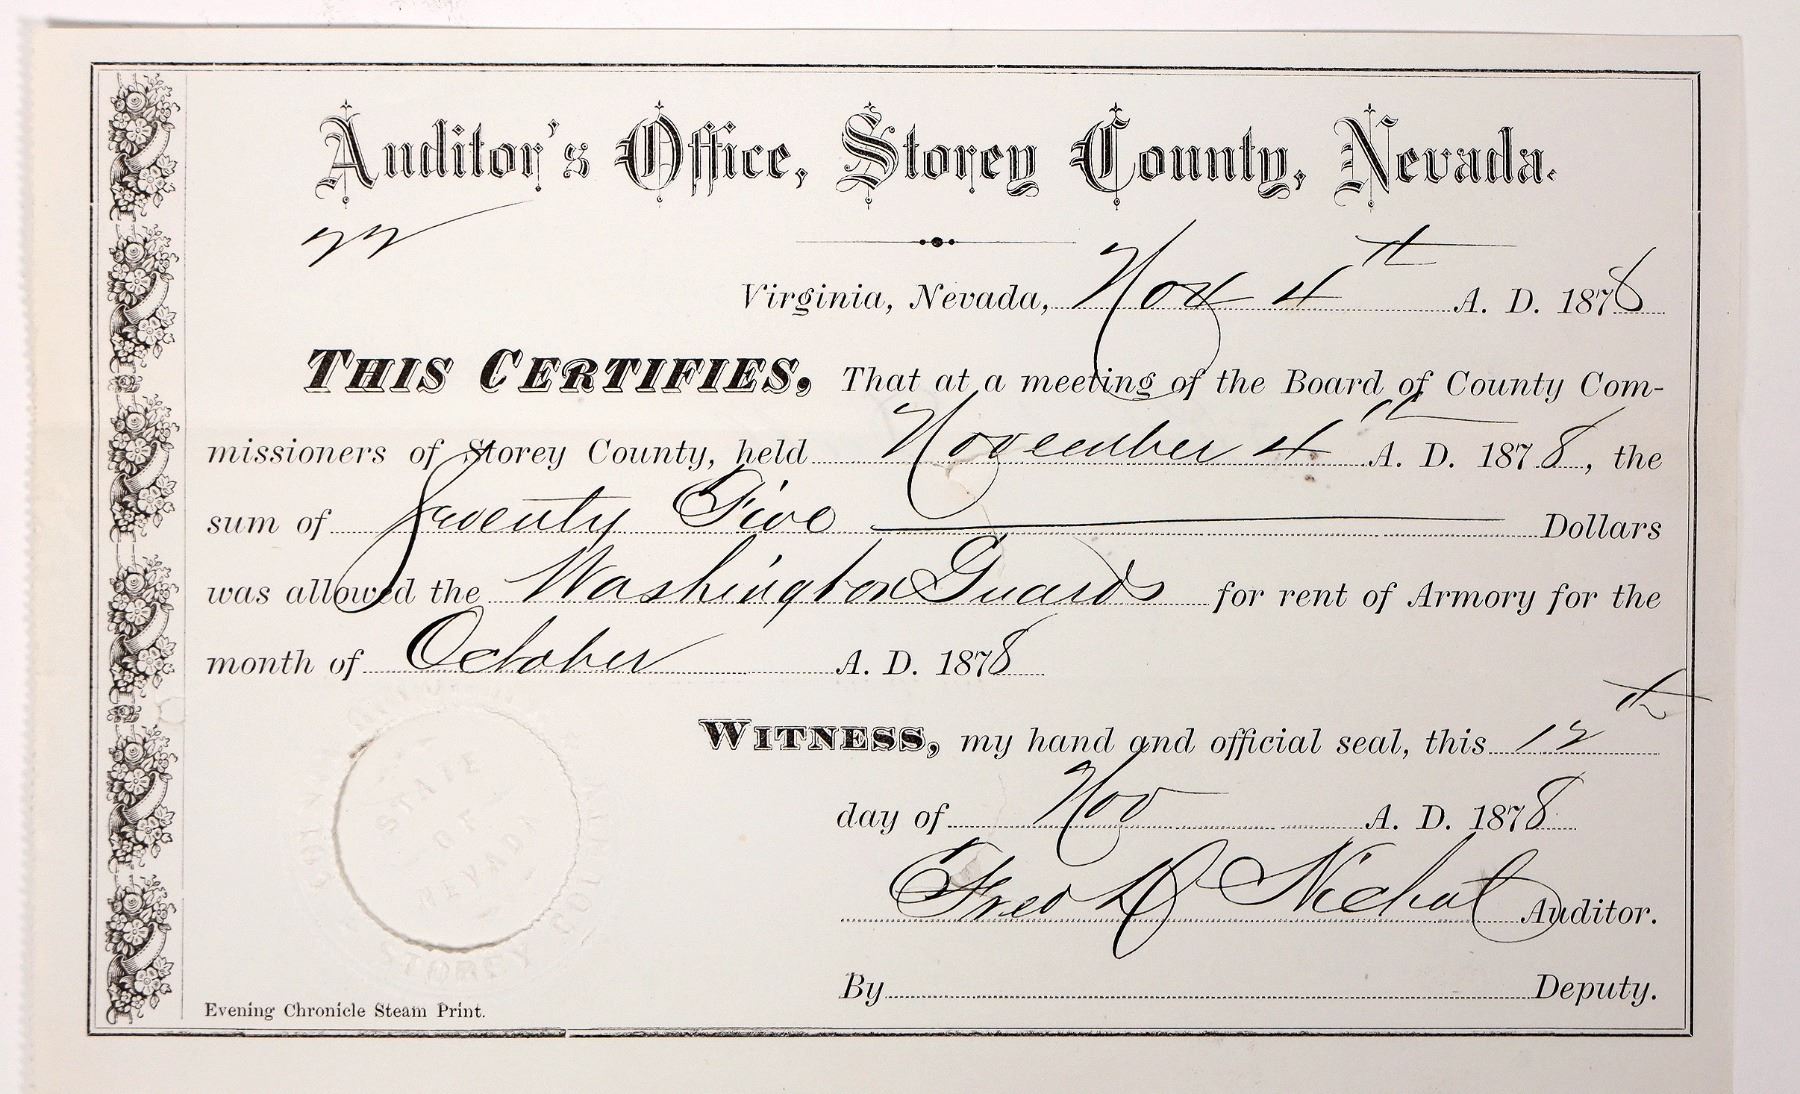 Auditor's Office, Storey County, Nevada.
Virginia, Nevada, Nov 4th A. D. 1878
THIS CERTIFIES, That at a meeting of the Board of County Com-
missioners of Storey County, held November 4th A. D. 1878, the
sum of Seventy Five Dollars
was allowed the Washington Guards for rent of Armory for the
month of October A. D. 1878
WITNESS, my hand and official seal, this 12th
day of Nov A. D. 1878
Fred D Nichol Auditor.
By Deputy.
STATE
OF
NEVADA
STOREY COUNTY
Evening Chronicle Steam Print.